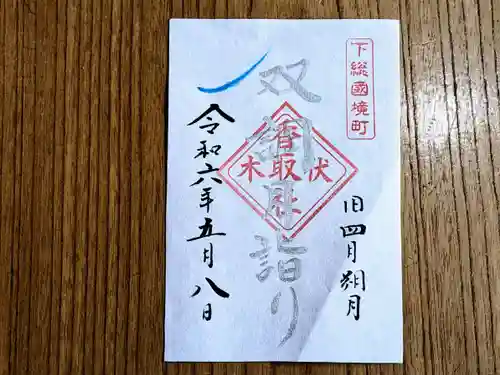 下総國境町
旧四月朔月
双朔月詣り
香取社
伏木
令和六年五月八日